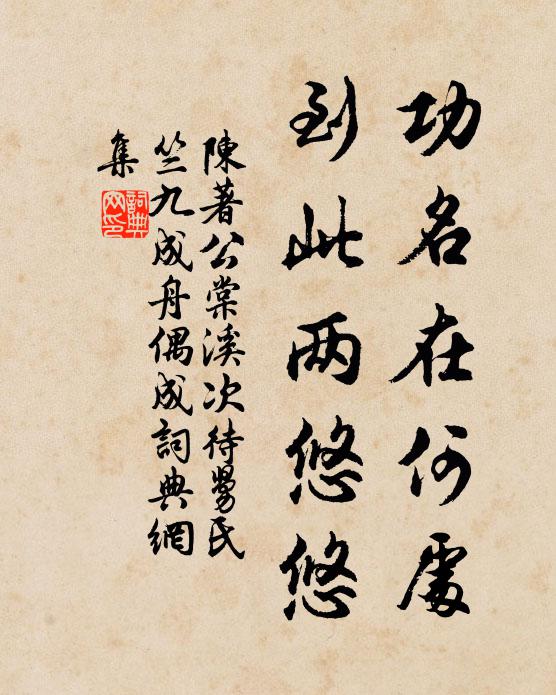 功名在何處
到此两悠悠
陳著公棠溪次待勞氏
竺九成舟偶成詞典網
集
詞典
网印